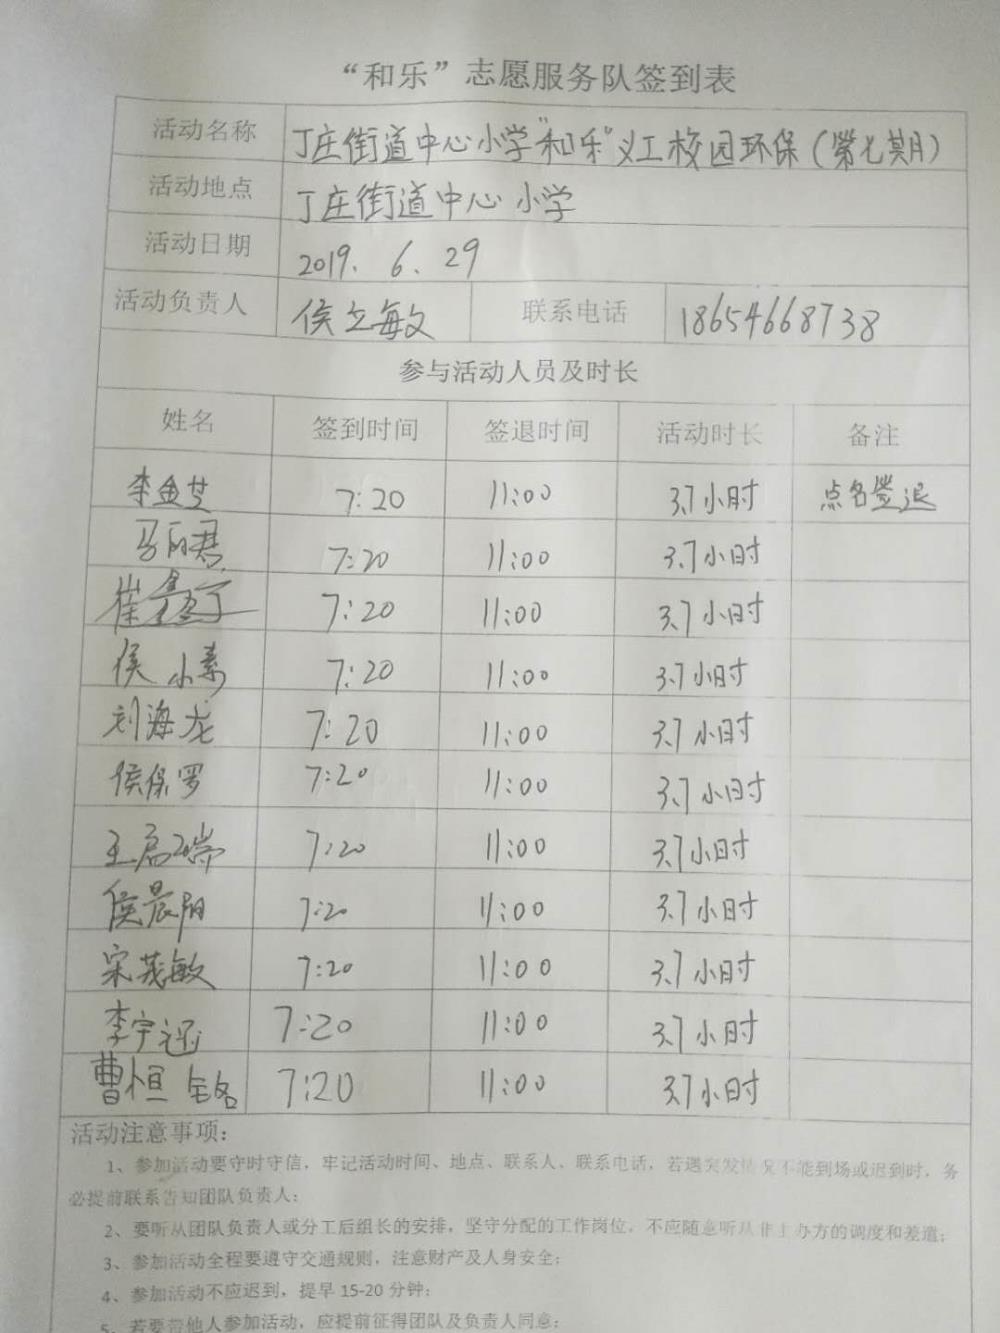 “和乐”志愿服务队签到表
活动名称 丁庄街道中心小学“和乐”义工校园环保（第七期）
活动地点 丁庄街道中心小学
活动日期 2019. 6. 29
活动负责人 侯立敏 联系电话 18654668738
参与活动人员及时长
姓名 签到时间 签退时间 活动时长 备注
李金芝 7:20 11:00 3.7小时 点名签退
马丽君 7:20 11:00 3.7小时
崔 7:20 11:00 3.7小时
侯小素 7:20 11:00 3.7小时
刘海龙 7:20 11:00 3.7小时
侯保罗 7:20 11:00 3.7小时
王启瑞 7:20 11:00 3.7小时
侯晨阳 7:20 11:00 3.7小时
宋茂敏 7:20 11:00 3.7小时
李宇 7:20 11:00 3.7小时
曹恒铭 7:20 11:00 3.7小时
活动注意事项：
1、参加活动要守时守信，牢记活动时间、地点、联系人、联系电话，若遇突发情况不能到场或迟到时，务
必提前联系告知团队负责人；
2、要听从团队负责人或分工后组长的安排，坚守分配的工作岗位，不应随意听从非主办方的调度和差遣；
3、参加活动全程要遵守交通规则，注意财产及人身安全；
4、参加活动不应迟到，提早 15-20 分钟；
5、若要带他人参加活动，应提前征得团队及负责人同意；